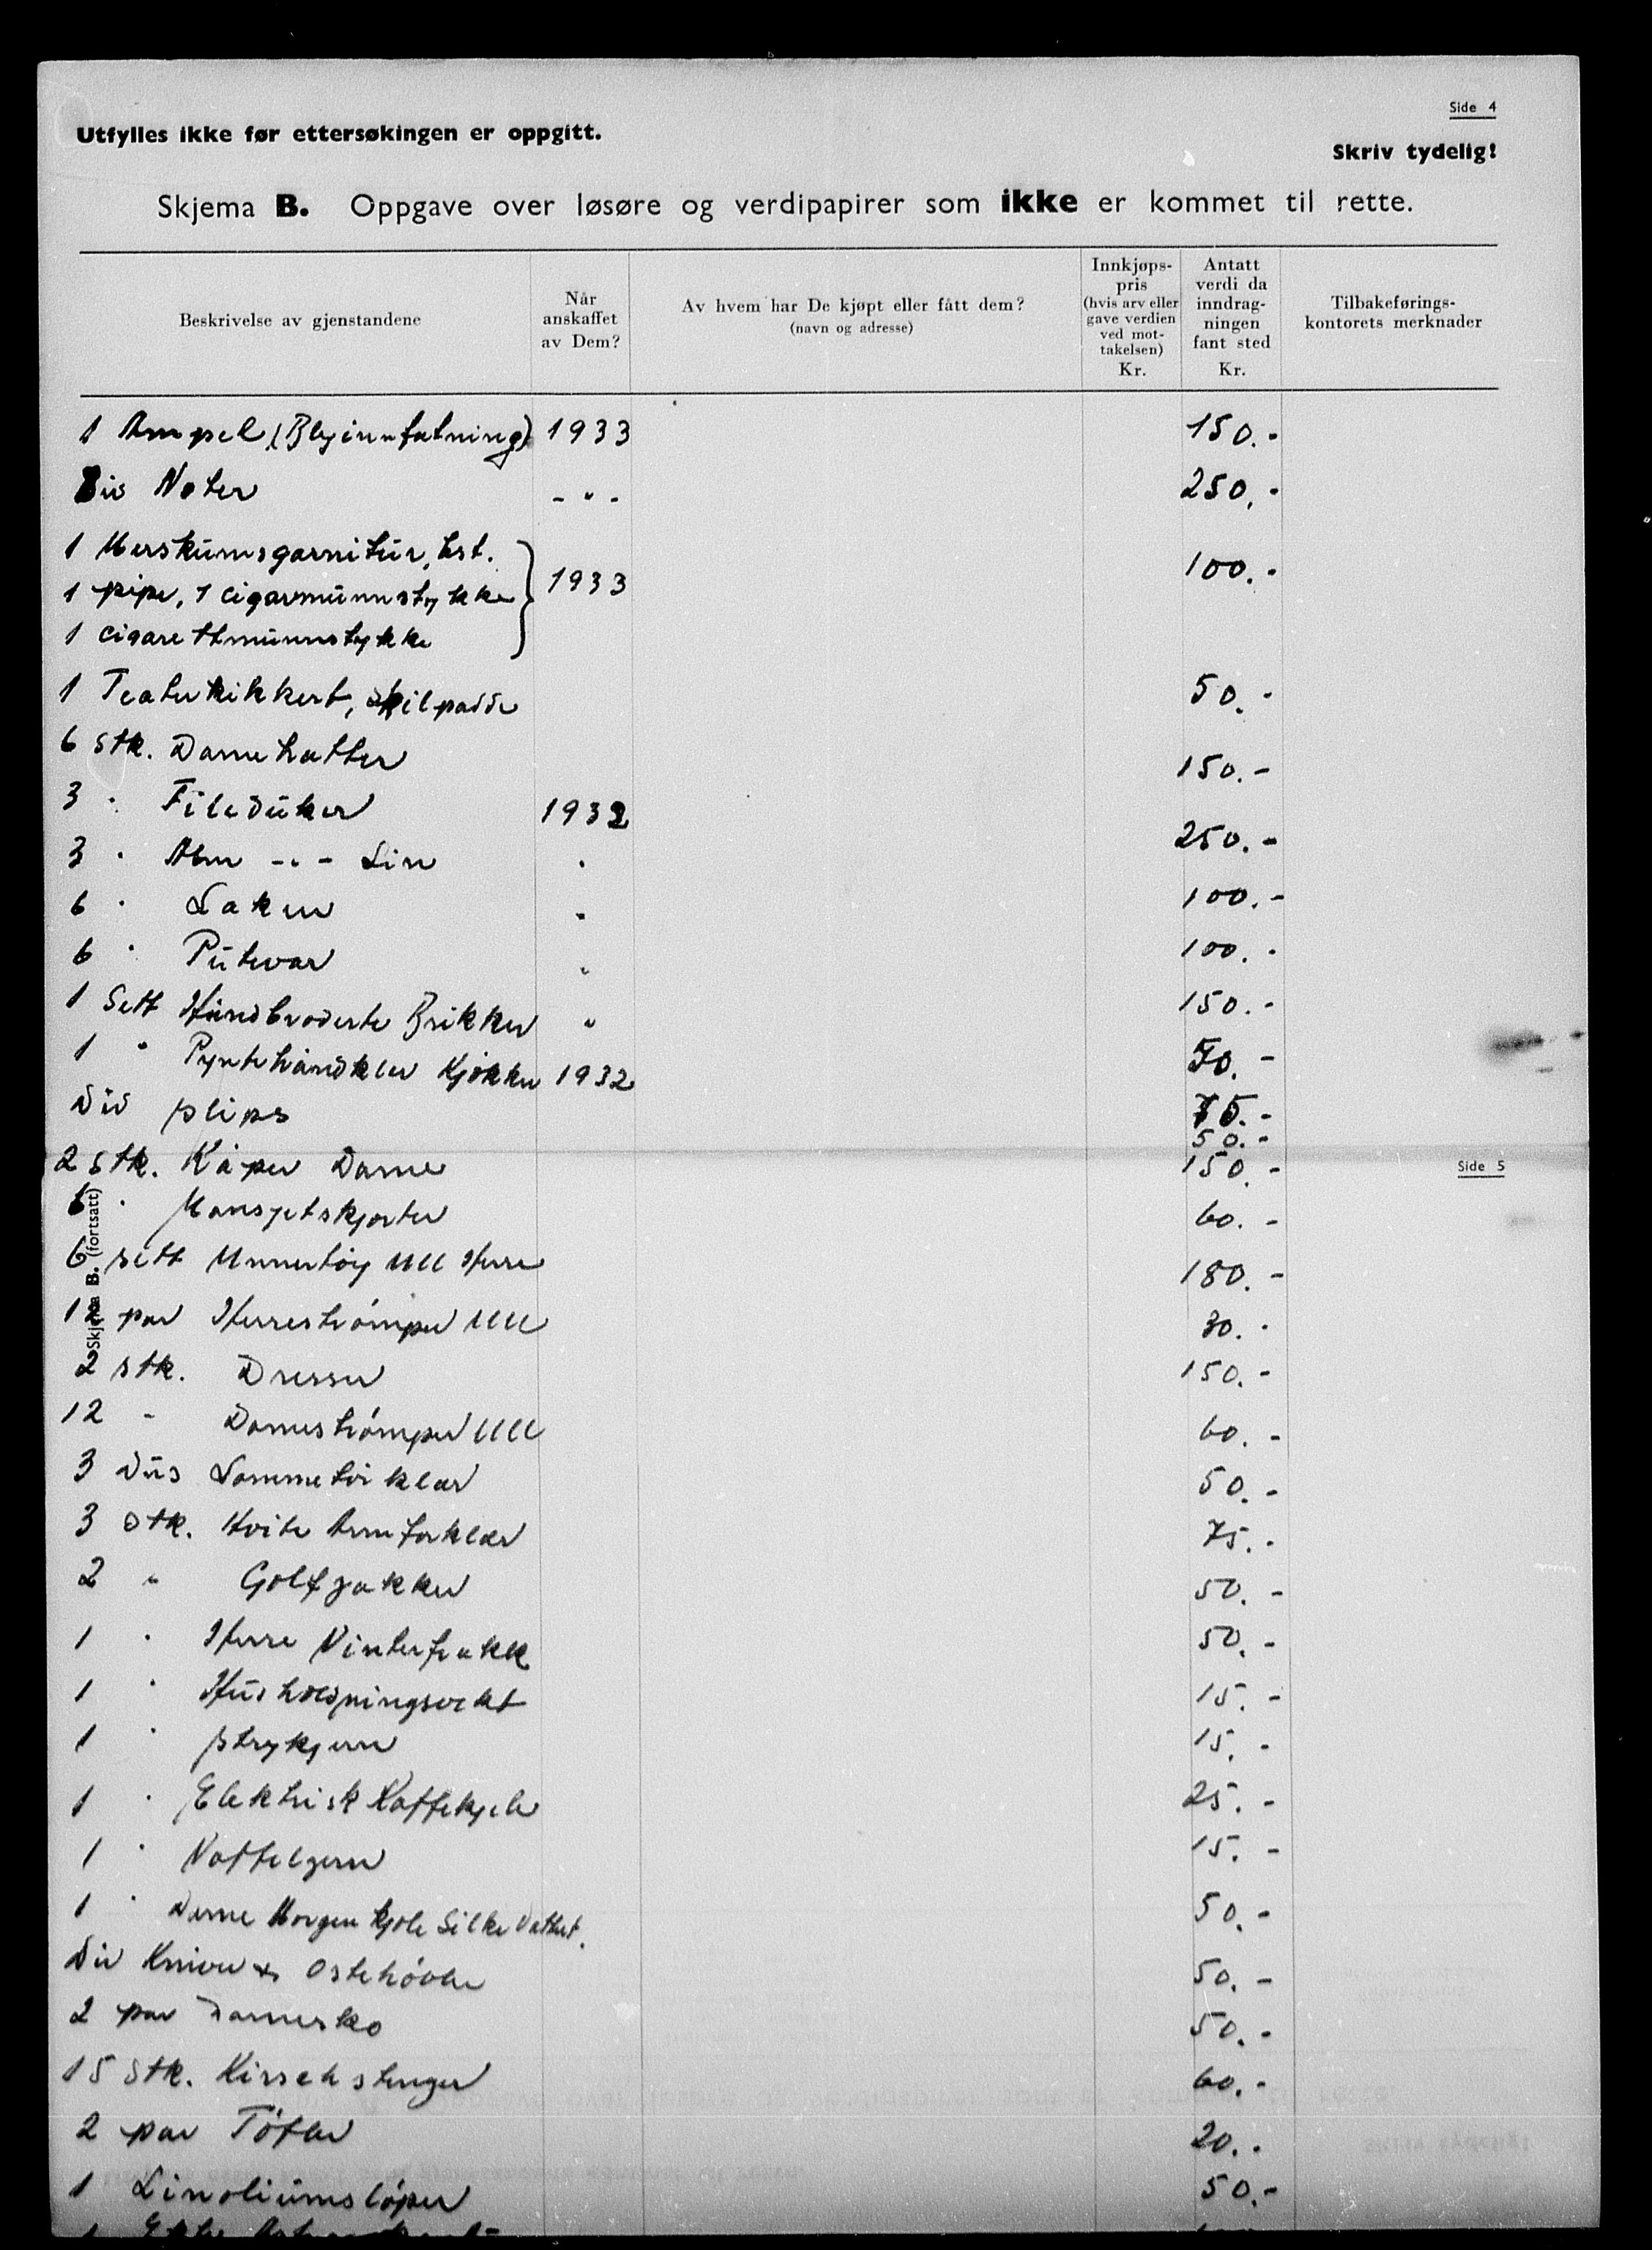 Side 4
Utfylles ikke før ettersøkingen er oppgitt.
Skriv tydelig!
Skjema B. Oppgave over løsøre og verdipapirer som ikke er kommet til rette.
Beskrivelse av gjenstandene
Når anskaffet av Dem?
Av hvem har De kjøpt eller fått dem? (navn og adresse)
Innkjøps-pris (hvis arv eller gave verdien ved mot-takelsen) Kr.
Antatt verdi da inndrag-ningen fant sted Kr.
Tilbakeførings-kontorets merknader
1 Ampel (Blyinnfatning) 1933 150.-
Div Noter - " - 250.-
1 Merskumsgarnitur, best.
1 pipe, 1 cigarmunnstykke 1933 100.-
1 cigarettmunnstykke
1 Teaterkikkert, skilpadde 50.-
6 stk. Damehatter 150.-
3 " Fileduker 1932 250.-
3 " Alm -"- Lin " 100.-
6 " Laken " 100.-
6 " Putevar " 150.-
1 Sett Håndbroderte Brikker " 50.-
1 " Pyntehåndklær Kjøkken 1932 75.-
Div slips 50.-
2 stk. Kåper Dame 150.-
Side 5
Skjema B. (fortsatt)
6 " Mansjetskjorter 60.-
6 sett Unnertöy Ull Herre 180.-
12 par Herreströmper Ull 30.-
2 stk. Dresser 150.-
12 - Dameströmper Ull 60.-
3 dus Lommetörklær 50.-
3 stk. Hvite Armforklær 75.-
2 " Golfjakker 50.-
1 " Herre Vinterfrakk 50.-
1 " Husholdningsvekt 15.-
1 " Strykjern 15.-
1 " Elektrisk Kaffekjele 25.-
1 " Vaffeljern 15.-
1 " Dame Morgenkjole Silke Vattert. 50.-
Div Kniver & Ostehövler 50.-
2 par Damesko 50.-
15 stk. Kirsch stenger 60.-
2 par Töfler 20.-
1 Linoliumslöper 50.-